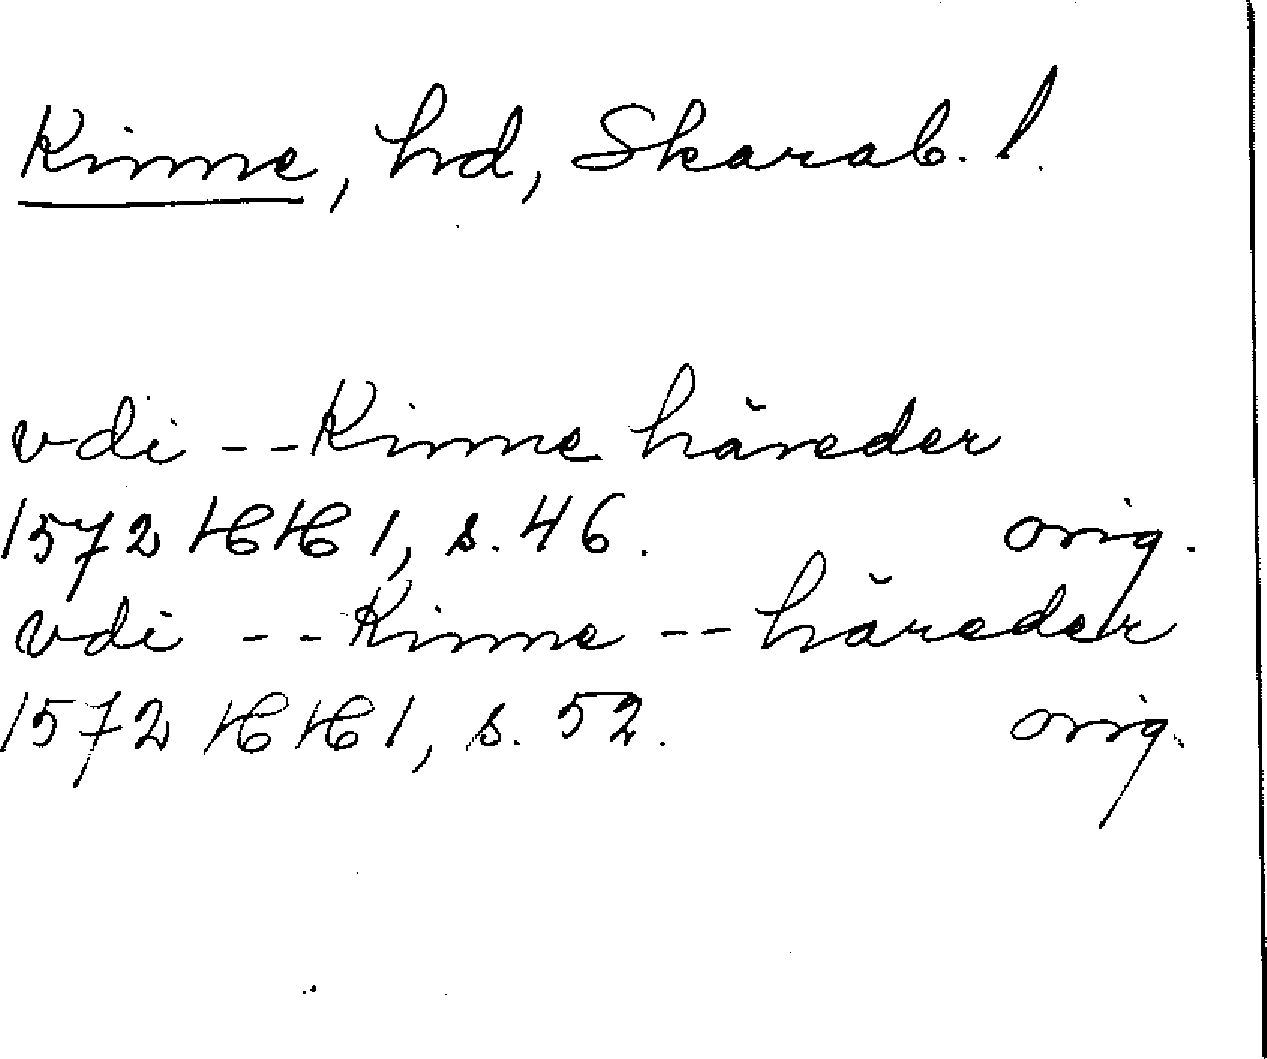 Kinne, hd, Skarab. l.
vdi -- Kinne häreder
1572 HH 1, s. 46. orig.
vdi -- Kinne -- häreder
1572 HH 1, s. 52. orig.